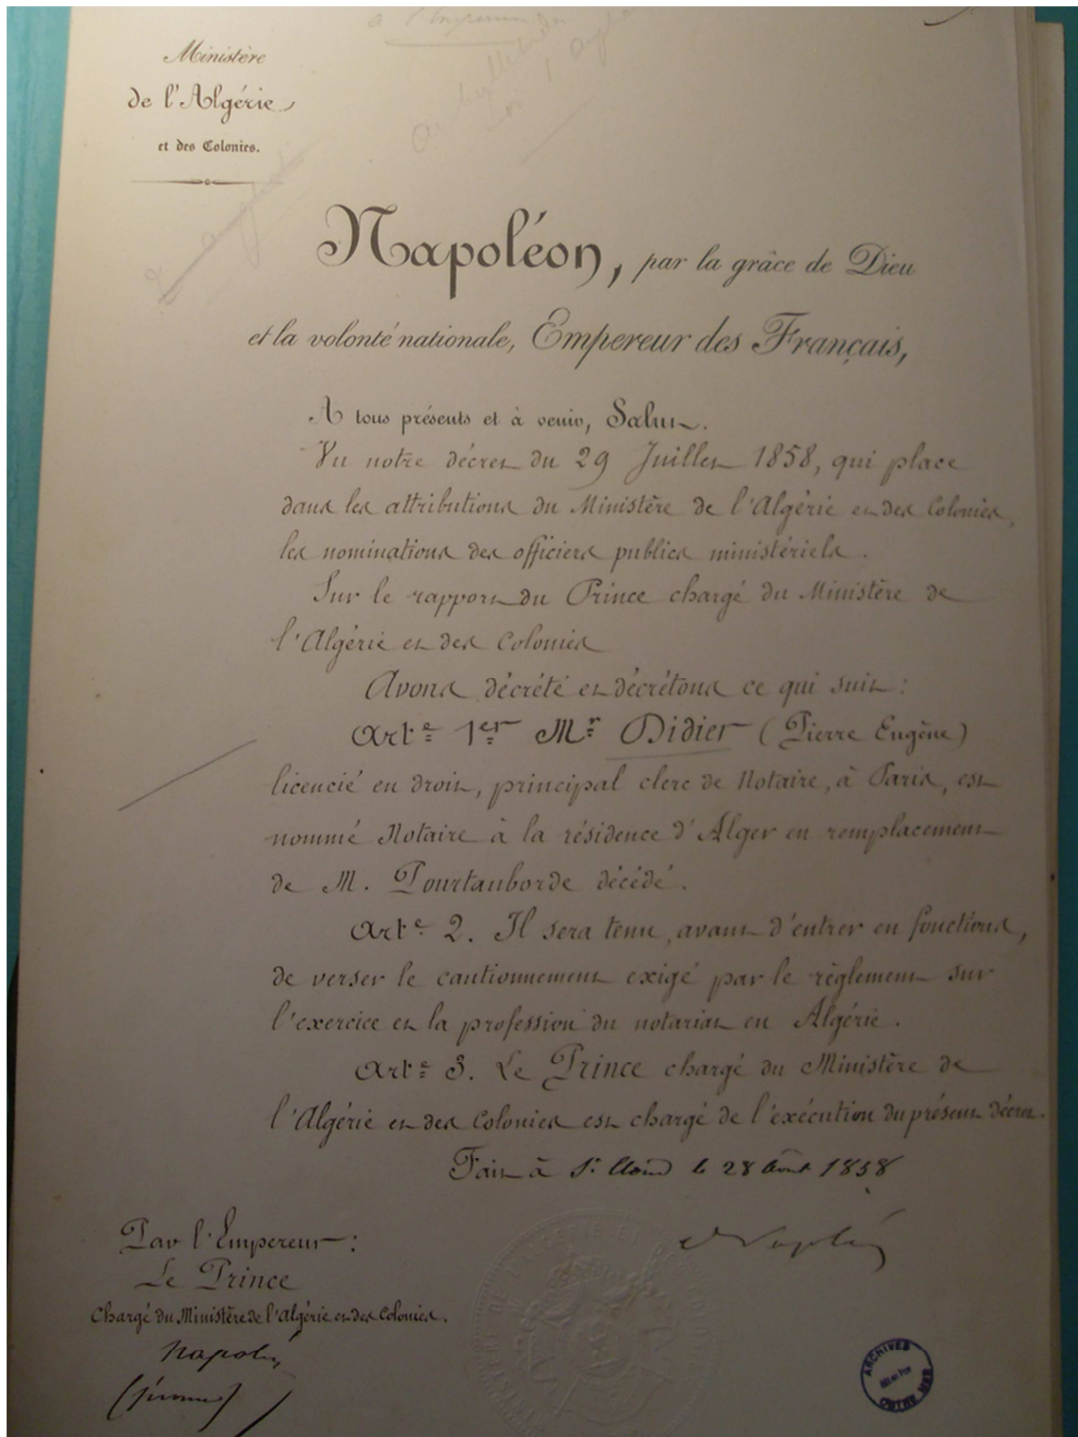 à l'Empereur
au bulletin des
Ministère
de l'Algérie
et des Colonies.
Napoléon, par la grâce de Dieu
et la volonté nationale, Empereur des Français,
A tous présents et à venir, Salut.
Vu notre décret du 29 Juillet 1858, qui place
dans les attributions du Ministère de l'Algérie et des Colonies,
les nominations des officiers publics ministériels.
Sur le rapport du Prince chargé du Ministère de
l'Algérie et des Colonies
Avons décrété et décrétons ce qui suit :
Arte 1er Mr Didier (Pierre Eugène)
licencié en droit, principal clerc de Notaire, à Paris, est
nommé Notaire à la résidence d'Alger en remplacement
de M. Pourtauborde décédé.
Arte 2. Il sera tenu, avant d'entrer en fonctions,
de verser le cautionnement exigé par le règlement sur
l'exercice et la profession du notariat en Algérie.
Arte 3. Le Prince chargé du Ministère de
l'Algérie et des Colonies est chargé de l'exécution du présent décret.
Fait à St Cloud le 28 Août 1858
Napoléon
Par l'Empereur :
Le Prince
Chargé du Ministère de l'Algérie et des Colonies.
Napoléon
(Jérome)
MINISTÈRE DE L'ALGÉRIE ET DES COLONIES
ARCHIVES
OUTRE MER